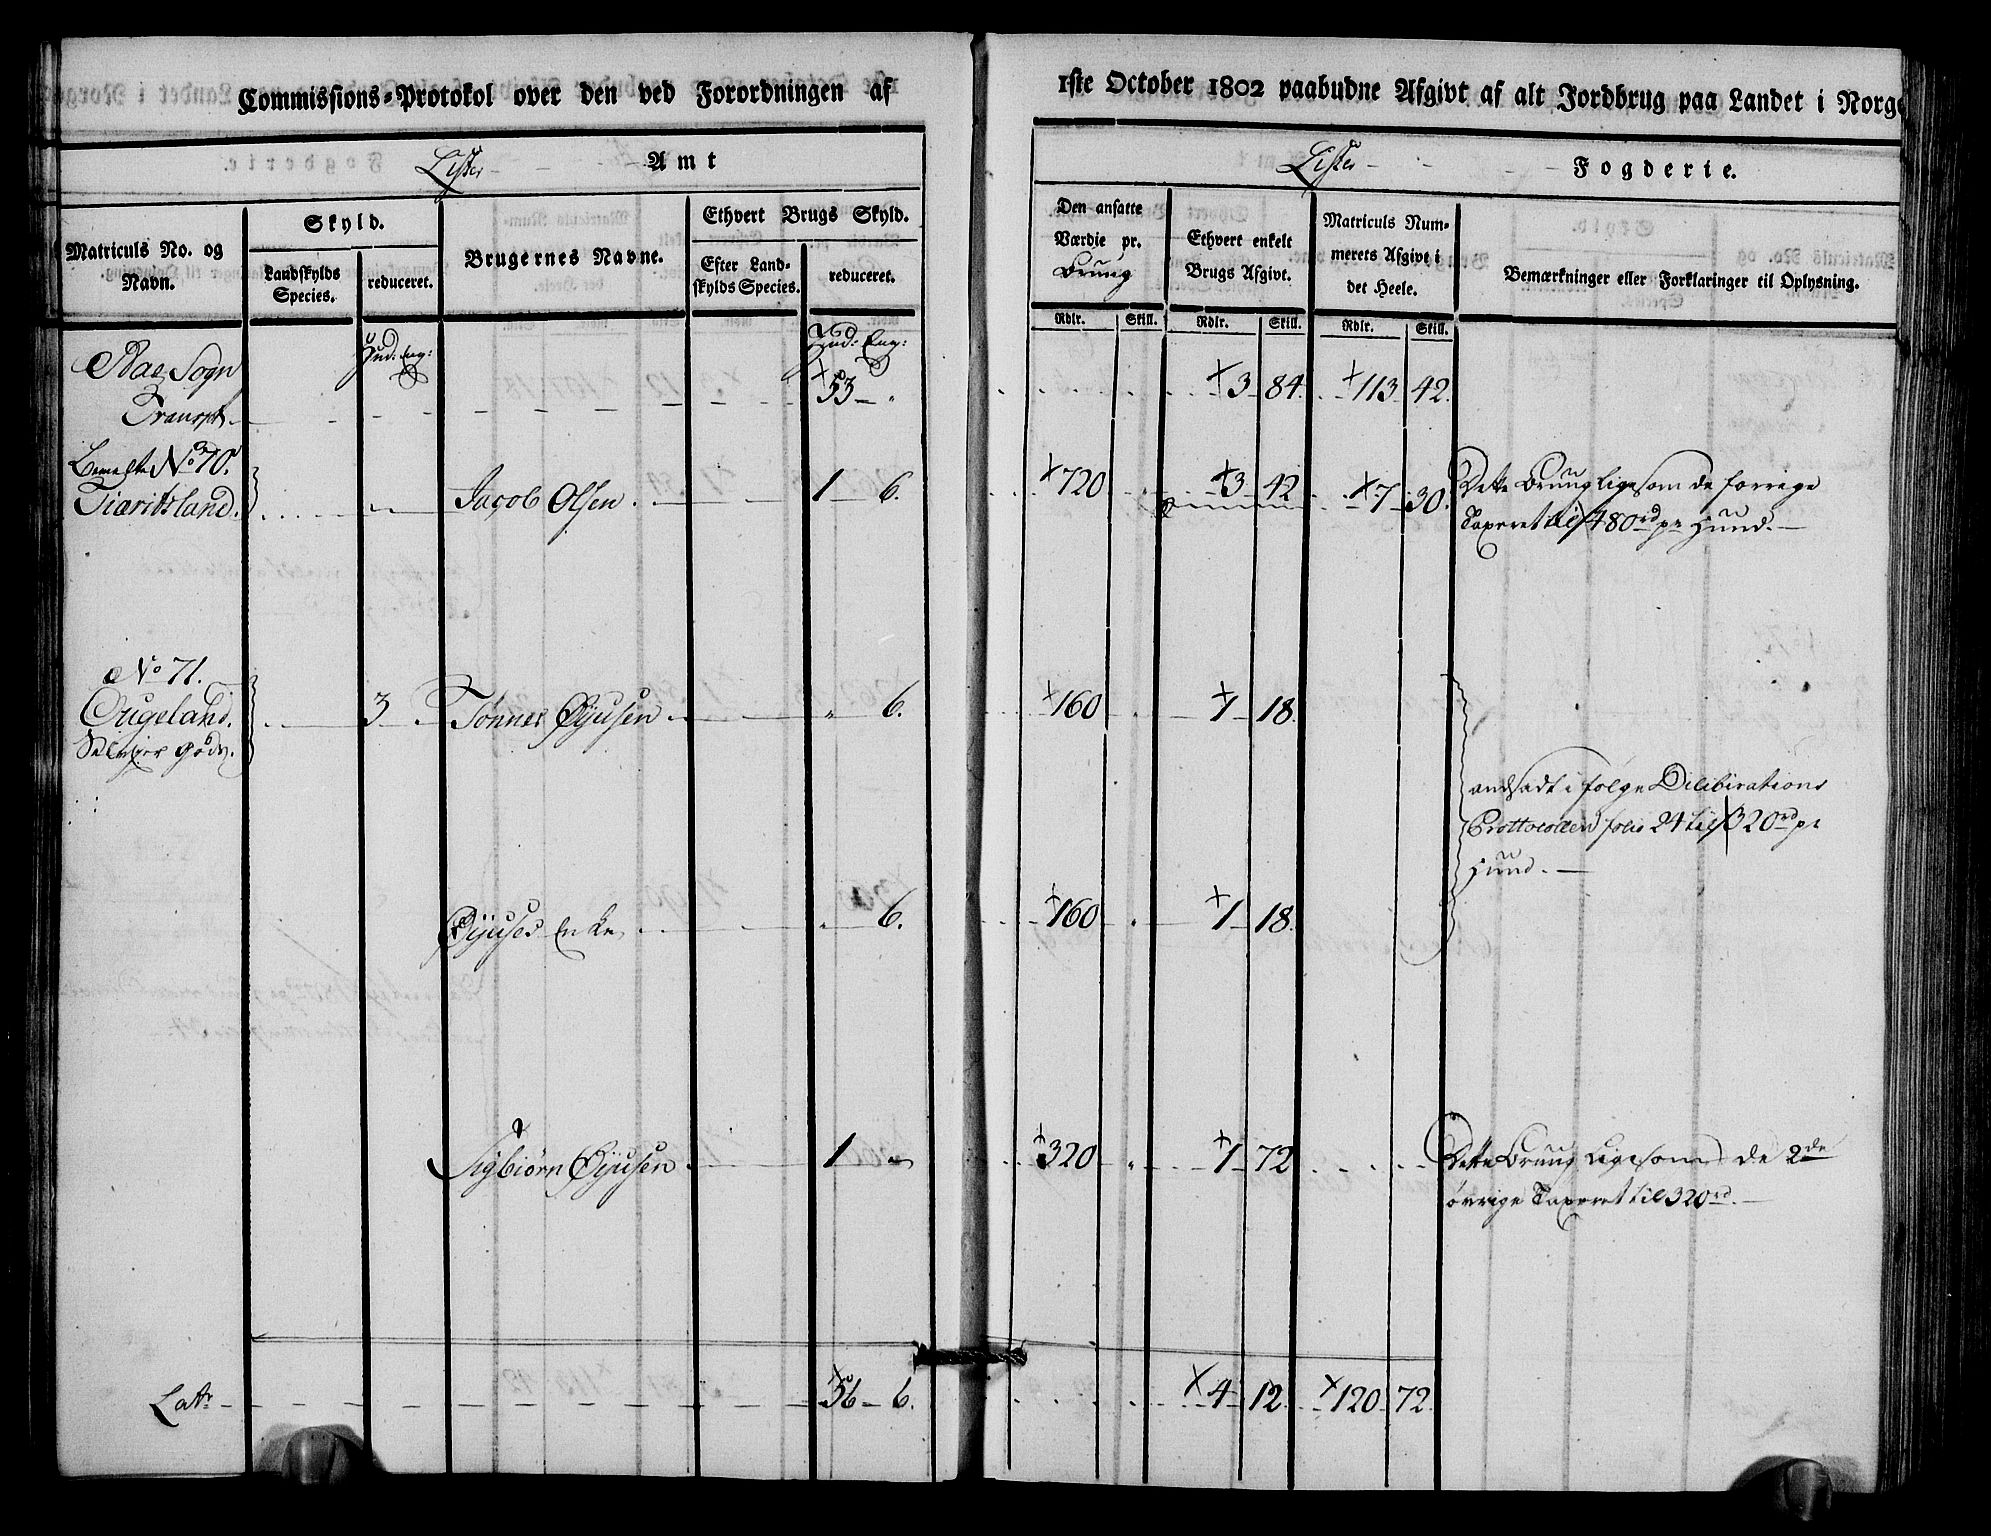 Commissions-Protokol over den ved Forordningen af
1ste October 1802 paabudne Afgivt af alt Jordbrug paa Landet i Norge
Lister Amt
Lister Fogderie.
Matriculs No. og Navn.
Skyld.
Landskylds Species.
reduceret.
Brugernes Navne.
Ethvert Brugs Skyld.
Efter Landskylds Species.
reduceret.
Den ansatte Værdie pr. Brug
Ethvert enkelt Brugs Afgivt.
Matriculs Nummerets Afgivt i det Heele.
Bemærkninger eller Forklaringer til Oplysning.
Rdlr. Skill. Rdlr. Skill. Rdlr. Skill.
Hud: Eng: Hud: Eng:
Sogn
Transpt 53 " 3 84 113 42
No 70. 
Tiaritsland. Jacob Olsen 1 6. 720 3 42 7 30. Dette Brug ligesom de forrige
Taxeret til 480rd pr Hud.
No 71.
Øugeland. 3 Tønnes Øÿusen " 6. 160 " 1 18
Gods.
andsadt i følge Delibirations
Prottocollen folio 24 til 320rd pr
Hud.
Øÿuses Enke " 6. 160 " 1 18
Sigbiørn Øÿusen 1 " 320 " 1 72 Dette Brug ligesom de 2de
øvrige Taxeret til 320rd.
Latr 56 6. 4 12 120 72